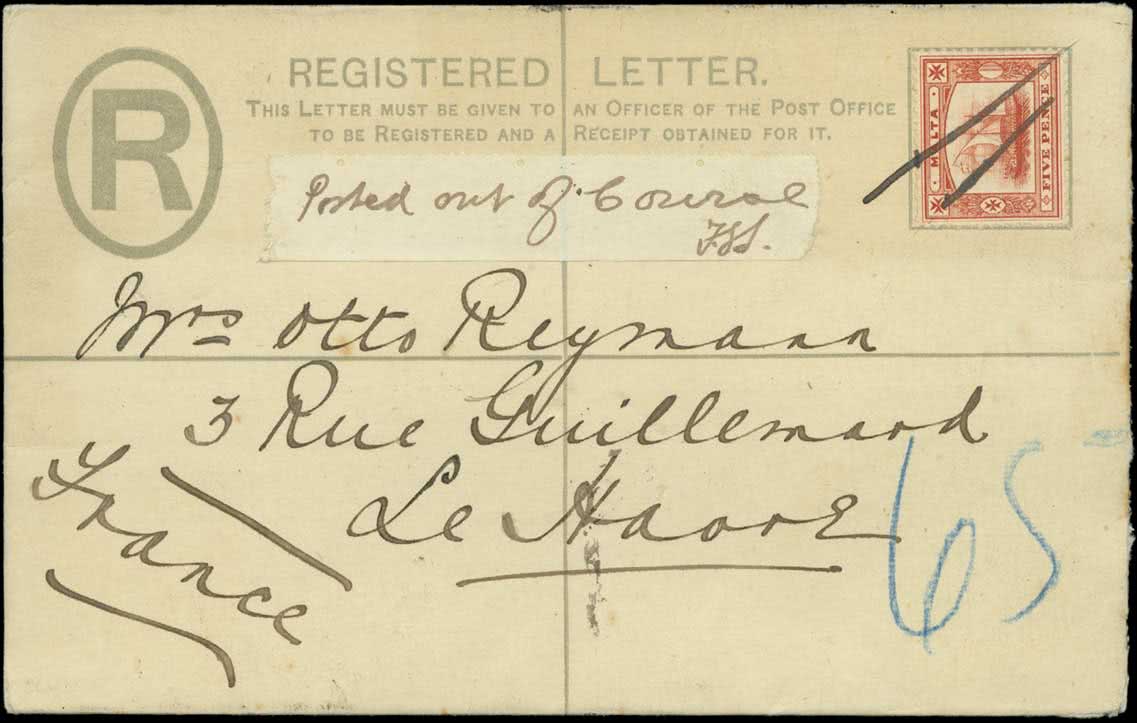 R
REGISTERED LETTER.
THIS LETTER MUST BE GIVEN TO AN OFFICER OF THE POST OFFICE
TO BE REGISTERED AND A RECEIPT OBTAINED FOR IT.
MALTA
FIVE PENCE
Posted out of Course
Mrs Otto Reymann
3 Rue Guillemard
Le Havre
France
65